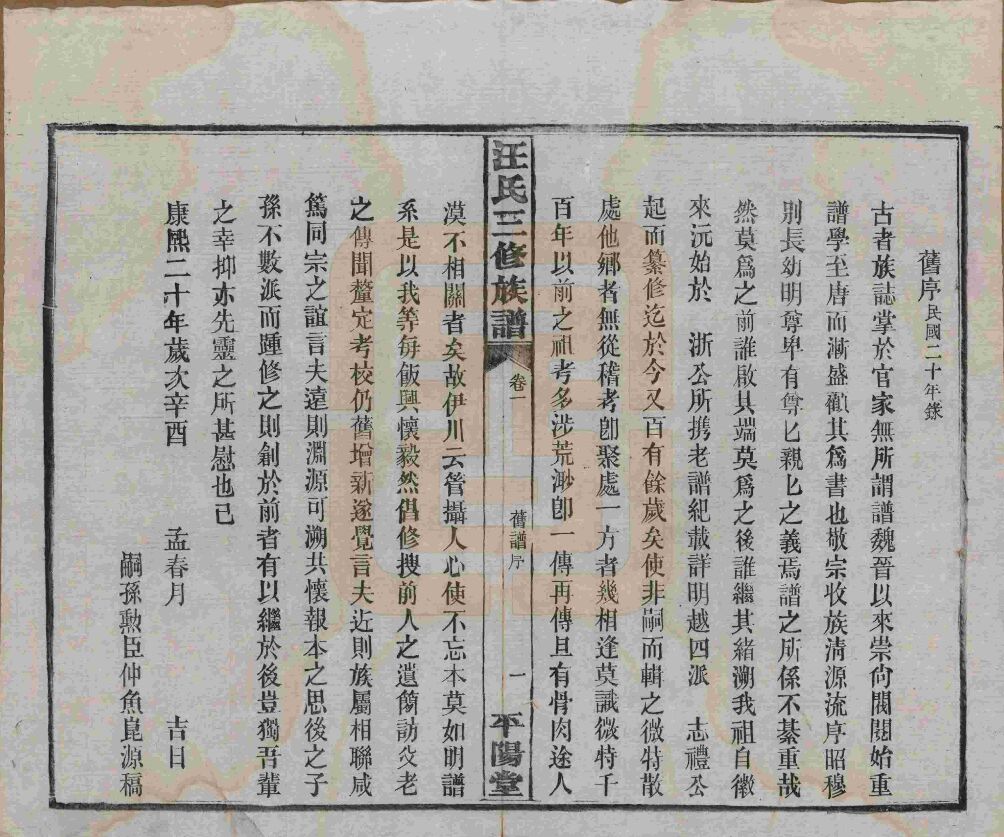 舊序民國二十年錄
古者族誌掌於官家無所謂譜魏晉以來崇尙閥閱始重
譜學至唐而漸盛顧其爲書也敬宗收族淸源流序昭穆
別長幼明尊卑有尊匕親匕之義焉譜之所係不綦重哉
然莫爲之前誰啟其端莫爲之後誰繼其緒溯我祖自徽
來沅始於 浙公所携老譜紀載詳明越四派 志禮公
起而纂修迄於今又百有餘歲矣使非嗣而輯之微特散
處他鄉者無從稽考卽聚處一方者幾相逢莫識微特千
百年以前之祖考多涉荒渺卽一傳再傳且有骨肉途人
汪氏三修族譜 卷一 舊譜序 一 平陽堂
漠不相關者矣故伊川云管攝人心使不忘本莫如明譜
系是以我等每飯興懷毅然倡修搜前人之遺簡訪父老
之傳聞釐定考校仍舊增新遂覺言夫近則族屬相聯咸
篤同宗之誼言夫遠則淵源可溯共懷報本之思後之子
孫不數派而踵修之則創於前者有以繼於後豈獨吾輩
之幸抑亦先靈之所甚慰也已
康熙二十年歲次辛酉 孟春月 吉日
嗣孫勲臣仲魚崑源稿